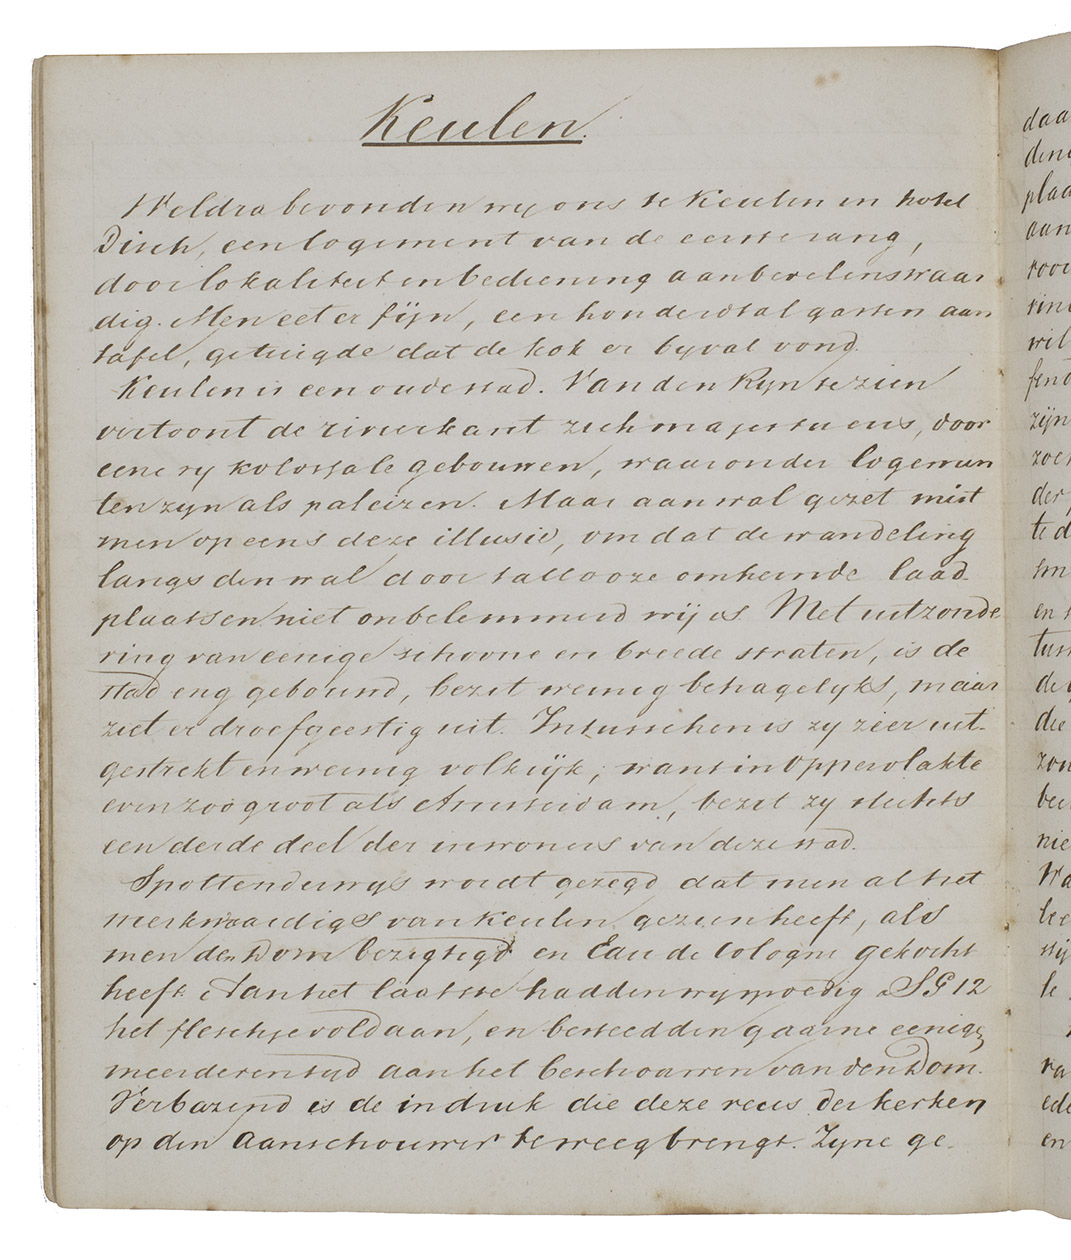 Keulen.
Weldra bevonden wy ons te Keulen in hotel
Disch, een logement van de eerste rang,
door lokaliteit en bediening aanbevelenswaar
dig. Men eet er fijn, een honderdtal gasten aan
tafel, getuigde dat de kok er byval vond.
Keulen is een oude stad. Van den Ryn te zien
vertoont de rivierkant zich majestueus, door
eene ry kolossale gebouwen, waaronder logemen
ten zyn als paleizen. Maar aan wal gezet mist
men op eens deze illusie, om dat de wandeling
langs den wal door tallooze omheinde laad
plaatsen niet onbelemmerd wij is. Met uitzonde
ring van eenige schoone en breede straten, is de
stad eng gebouwd, bezit weinig behagelyks, maar
ziet er droefgeestig uit. Intusschen is zy zeer uit-
gestrekt en weinig volkrijk; want in oppervlakte
even zoo groot als Amsterdam, bezit zy slechts
een derde deel der inwoners van deze stad.
Spottenderwys wordt gezegd dat men al het
merkwaardigs van Keulen gezien heeft, als
men den Dom bezigtigd en Eau de Cologne gekocht
heeft. Aan het laatste hadden wy spoedig a SG 12
het fleschje voldaan, en besteedden gaarne eenige
meerderen tyd aan het beschouwen van den Dom.
Verbazend is de indruk die deze reus der kerken
op den aanschouwer te weeg brengt. Zyne ge-
daa
dene
plaa
aan
rooi
wil
zijn
der
te d
en
die
zon
nie
le
ra
ede
en